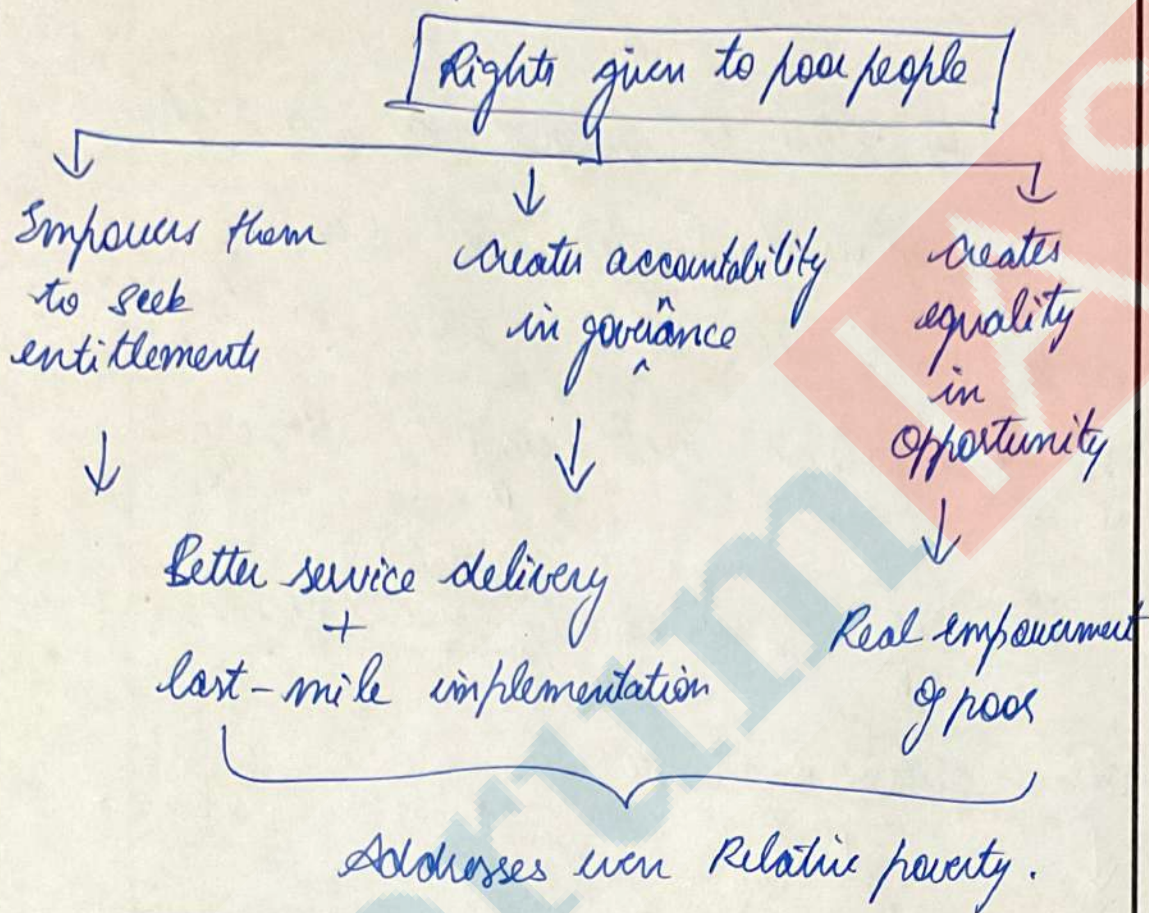 Rights given to poor people
Empowers them
to seek
entitlements
creates accountability
in goverance
creates
equality
in
opportunity
Better service delivery
+
last-mile implementation
Real empowerment
of poor
Addresses even Relative poverty.
rum
IA